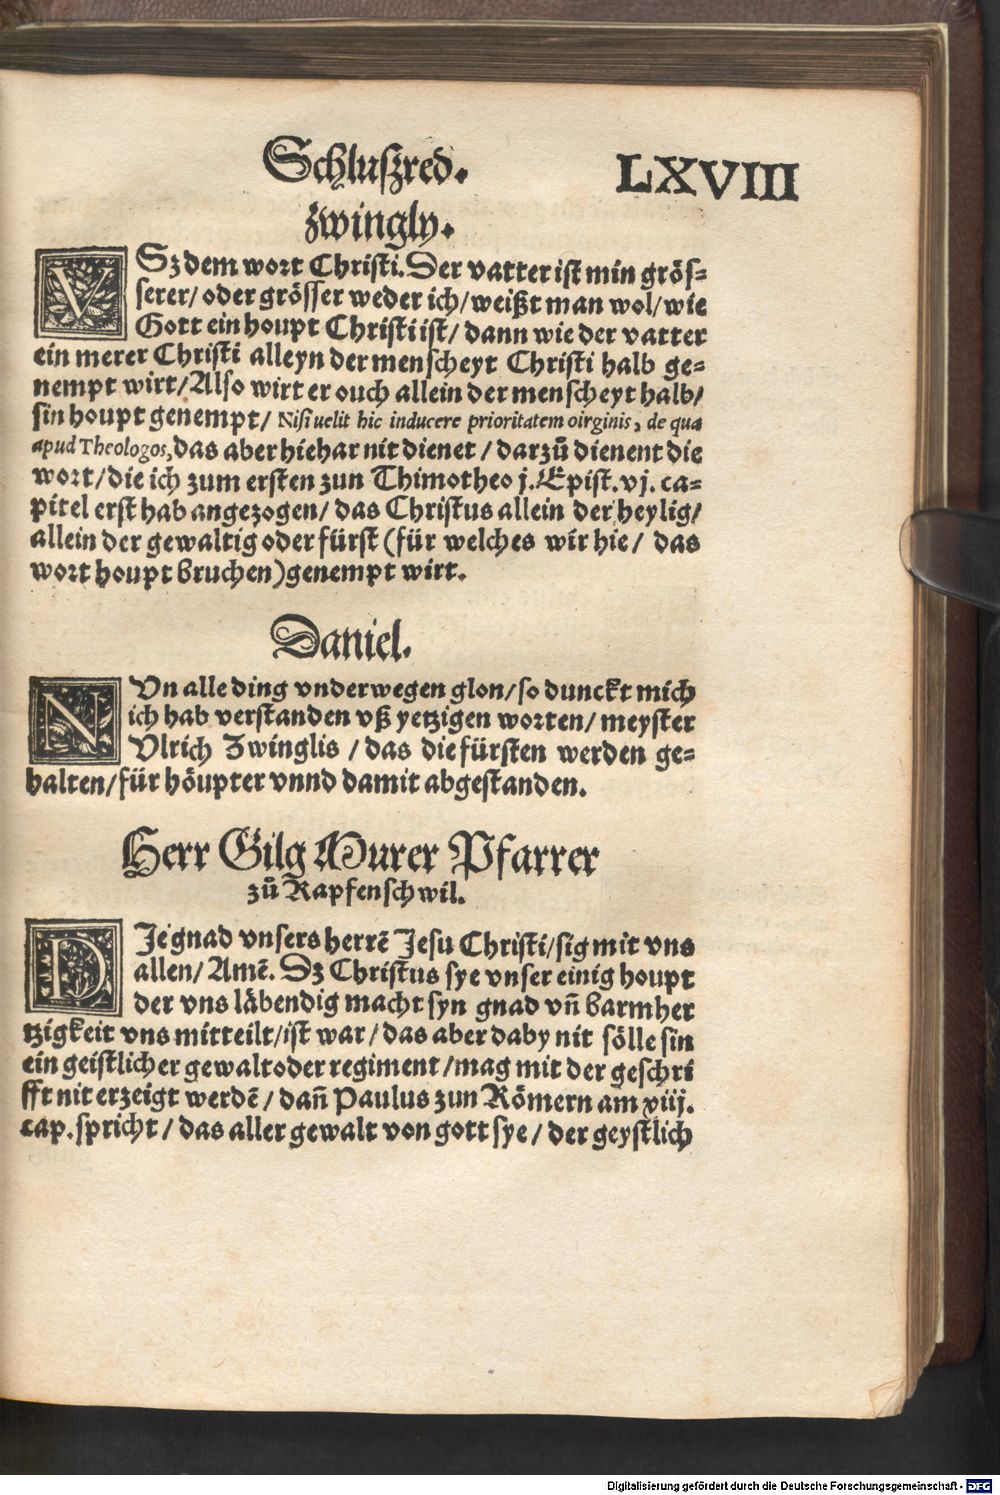 Schluszred. LXVIII
Zwingly.
VSz dem wort Christi. Der vatter ist min grös-
serer/ oder grösser weder ich/ weißt man wol/ wie
Gott ein houpt Christi ist/ dann wie der vatter
ein merer Christi alleyn der menscheyt Christi halb ge-
nempt wirt/ Also wirt er ouch allein der menscheyt halb/
sin houpt genempt/ Nisi uelit hic inducere prioritatem oirginis, de qua
apud Theologos, das aber hiehar nit dienet / darzů dienent die
wort/ die ich zum ersten zun Thimotheo j. Epist. vj. ca-
pitel erst hab angezogen/ das Christus allein der heylig/
allein der gewaltig oder fürst (für welches wir hie/ das
wort houpt bruchen) genempt wirt.
Daniel.
NVn alle ding vnderwegen glon/ so dunckt mich
ich hab verstanden vß yetzigen worten/ meyster
Vlrich Zwinglis / das die fürsten werden ge-
halten/ für höupter vnnd damit abgestanden.
Herr Gilg Murer Pfarrer
zů Rapfenschwil.
DJe gnad vnsers herrē Jesu Christi/ sig mit vns
allen/ Amē. Dz Christus sye vnser einig houpt
der vns läbendig macht syn gnad vñ barmher
tzigkeit vns mitteilt/ ist war/ das aber daby nit sölle sin
ein geistlicher gewalt oder regiment / mag mit der geschri
fft nit erzeigt werdē / dañ Paulus zun Römern am xiij.
cap. spricht / das aller gewalt von gott sye/ der geystlich
Digitalisierung gefördert durch die Deutsche Forschungsgemeinschaft - DFG